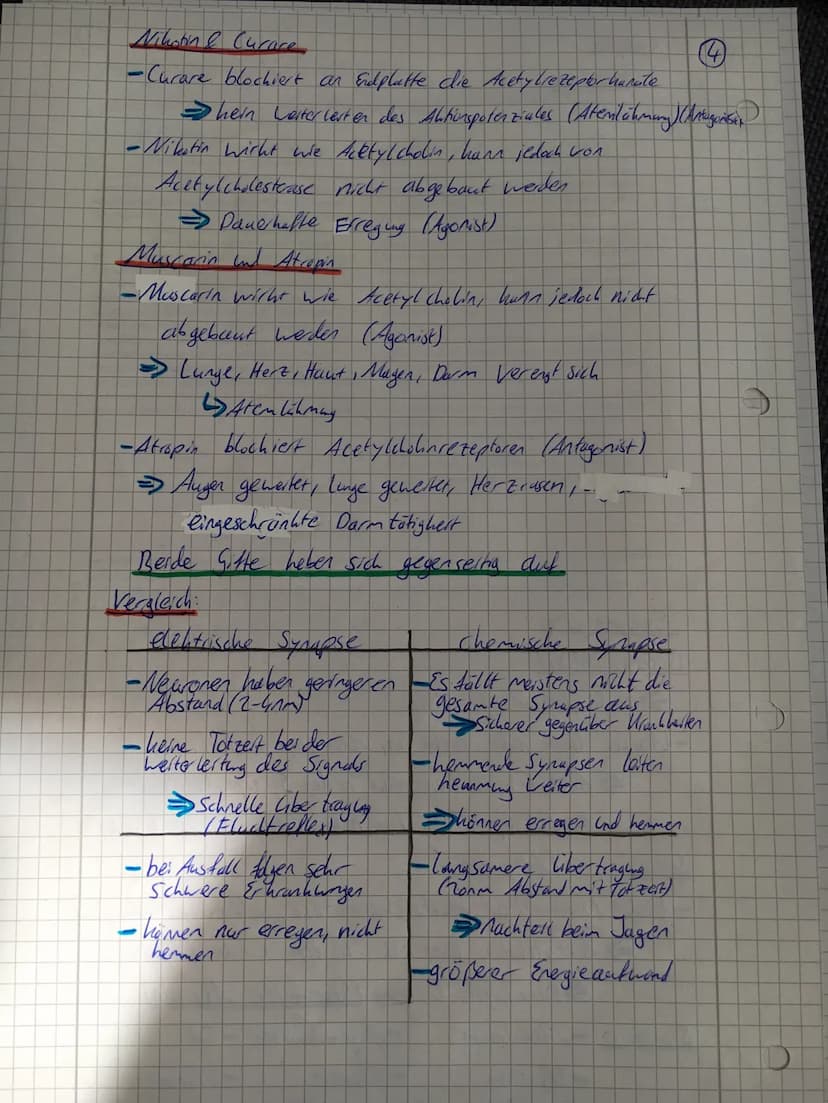 Nikotin & Curare
4
- Curare blockiert an Endplatte die Acetylrezeptorkanäle
⇒ kein Weiterleiten des Aktionspotenziales (Atemlähmung) (Antagonist)
- Nikotin wirkt wie Acetylcholin, kann jedoch von
Acetylcholesterase nicht abgebaut werden
⇒ Dauerhafte Erregung (Agonist)
Muscarin und Atropin
- Muscarin wirkt wie Acetylcholin, kann jedoch nicht
abgebaut werden (Agonist)
⇒ Lunge, Herz, Haut, Magen, Darm verengt sich
↳ Atemlähmung
- Atropin blockiert Acetylcholinrezeptoren (Antagonist)
⇒ Augen geweitet, Lunge geweitet, Herzrasen,
eingeschränkte Darmtätigkeit
Beide Gifte heben sich gegenseitig auf
Vergleich:
elektrische Synapse
- Neuronen haben geringeren
Abstand (2-4nm)
- keine Totzeit bei der
Weiterleitung des Signals
⇒ Schnelle Übertragung
(Fluchtreflex)
- bei Ausfall folgen sehr
schwere Erkrankungen
- können nur erregen, nicht
hemmen
chemische Synapse
- Es fällt meistens nicht die
gesamte Synapse aus
⇒ Sicherer gegenüber Krankheiten
- hemmende Synapsen leiten
hemmung weiter
⇒ können erregen und hemmen
- langsamere Übertragung
(20nm Abstand mit Totzeit)
⇒ Nachteil beim Jagen
- größerer Energieaufwand